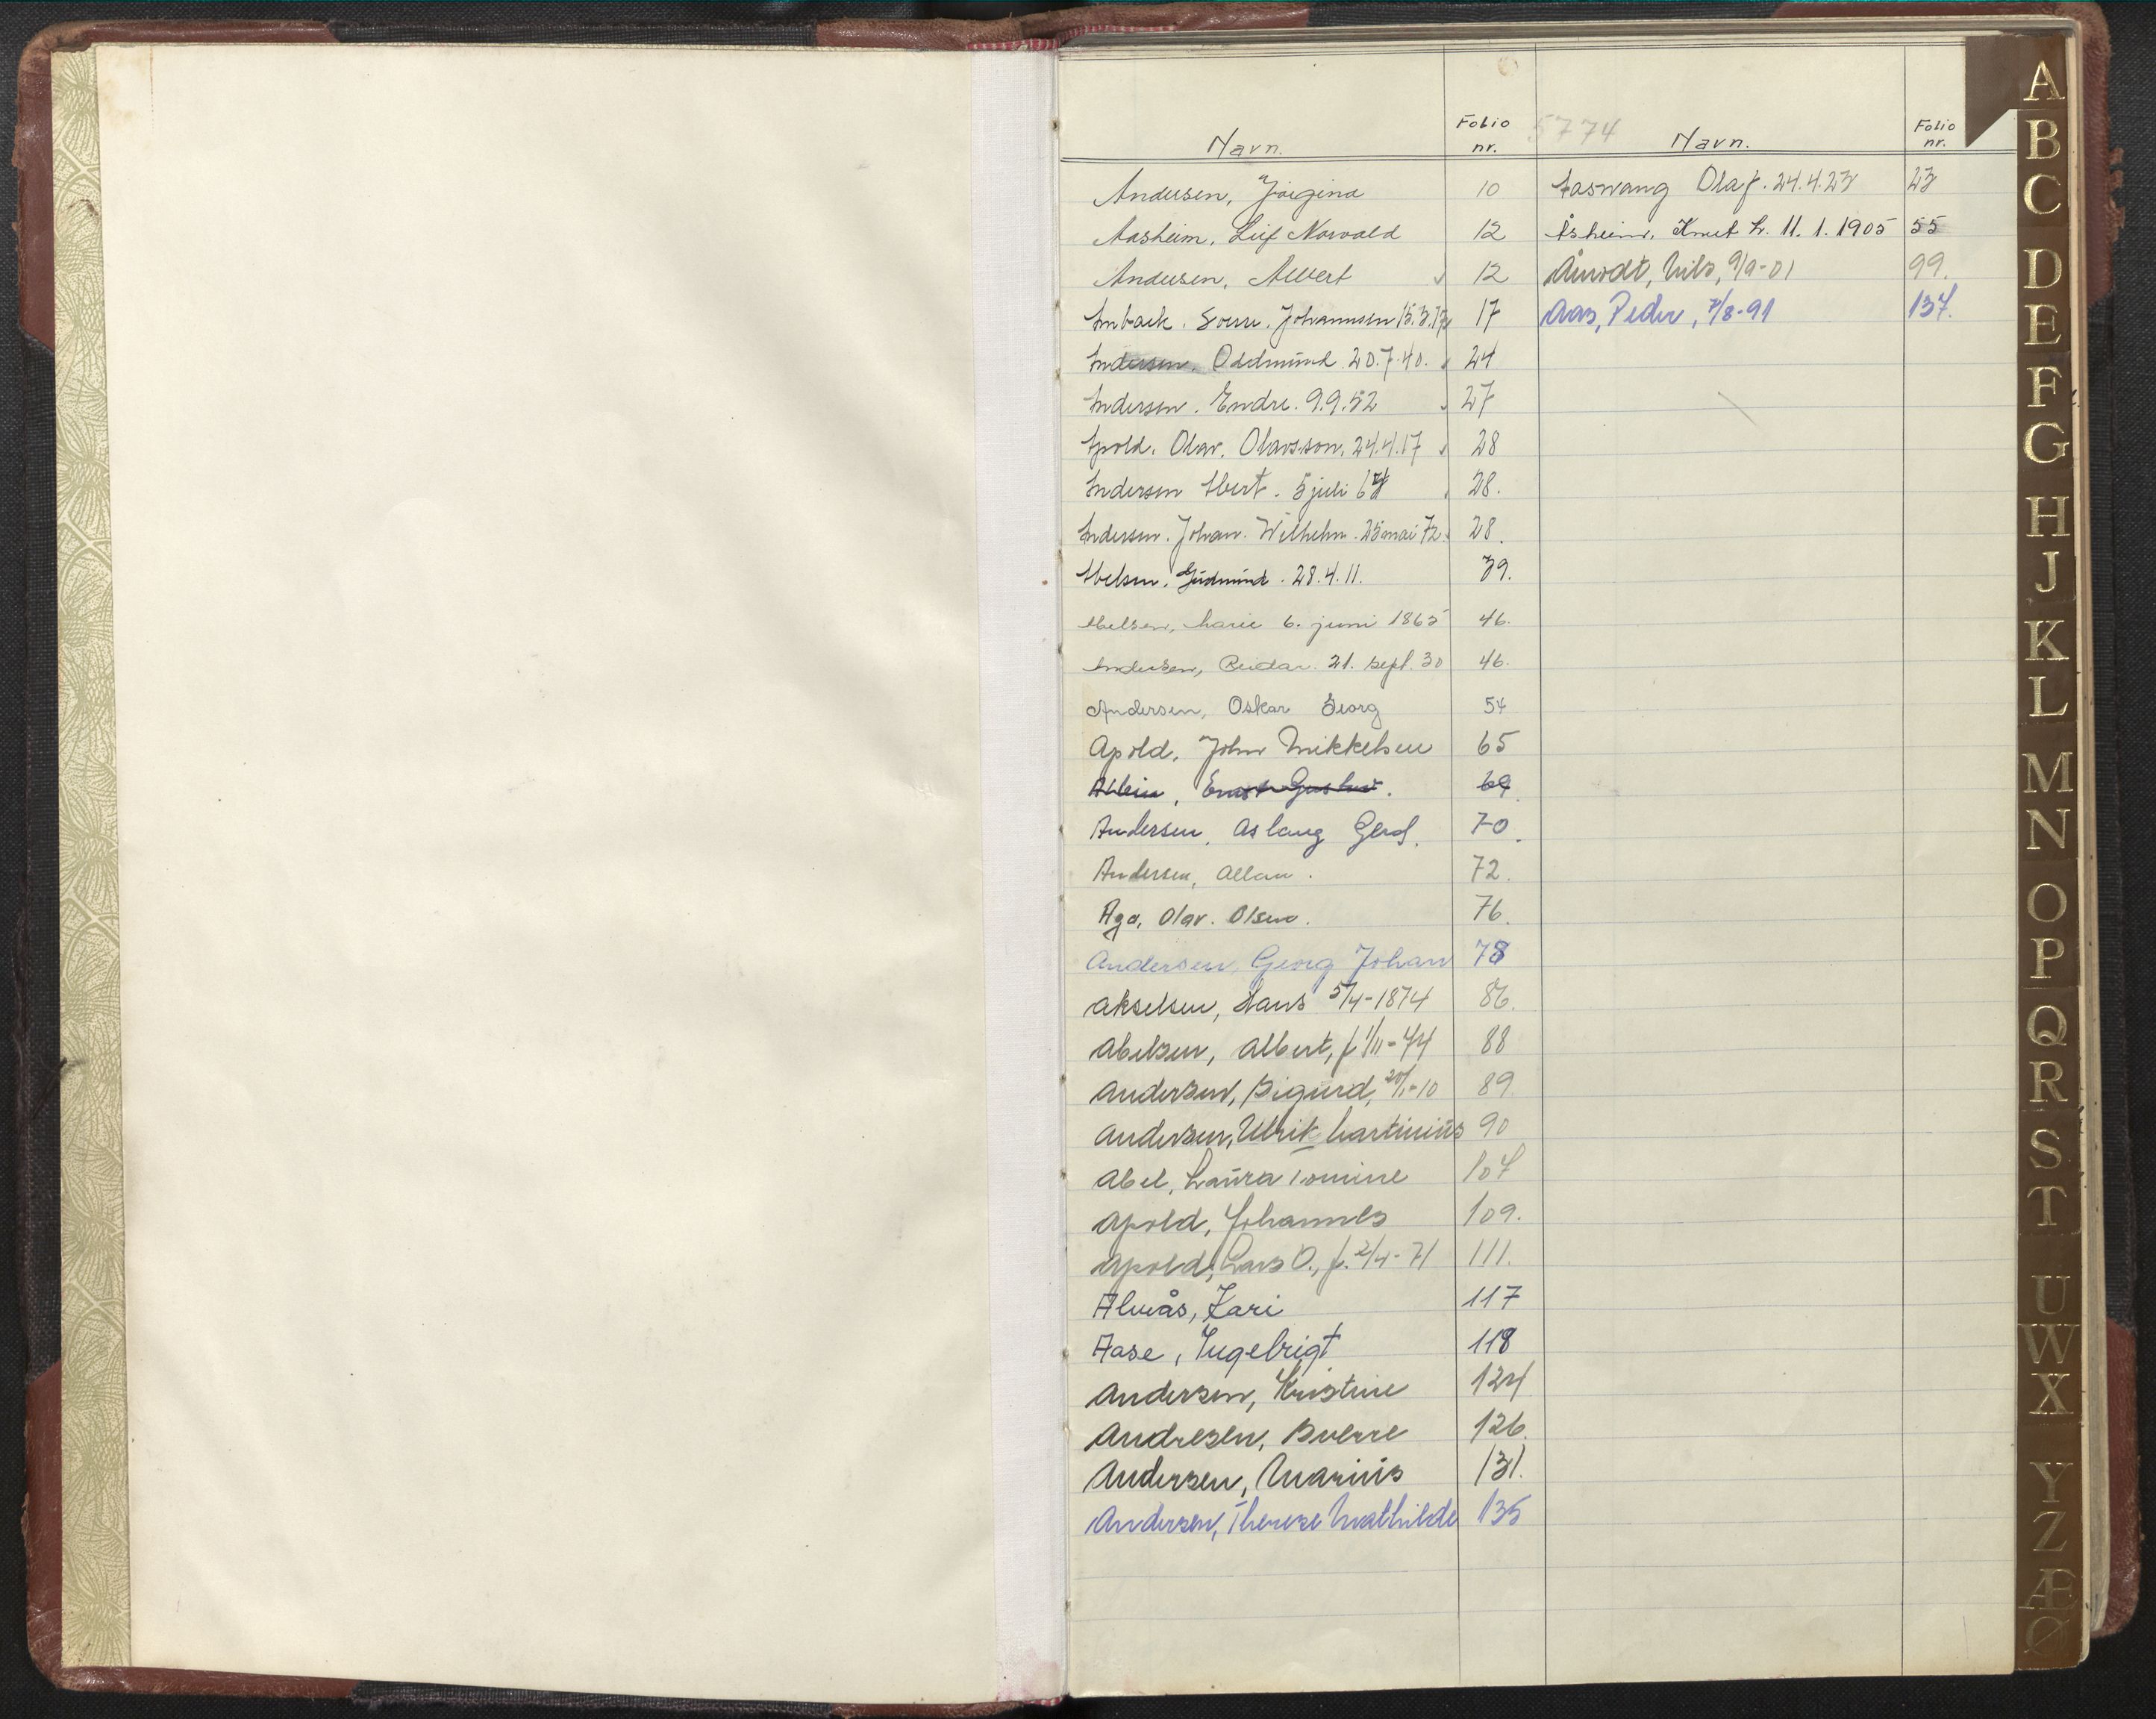 5774
Navn. Folio nr. Navn. Folio nr.
Andersen, Jørgina 10
Aasheim, Leif Norvald 12
Andersen, Albert 12
Sverre. Johannesen 15.3.13 17
Andersen. Oddmund 20.7.40. 24
Andersen. Endre. 9.9.52 27
Apold. Olav. Olavsson. 24.4.17 28
Andersen Albert. 5 juli 28.
Andersen. Johan. Wilhelm. 25 mai 72. 28.
Abelsen. Gudmund. 28.4.11. 39.
Abelsen, Marie 6. juni 1865 46.
Andersen, Reidar. 21. sept. 30 46.
Andersen, Oskar Georg 54
Apold, John Mikkelsen 65
Ernst Gustav. 69.
Andersen, Aslaug Gerd. 70.
Andersen, Allan. 72.
Aga, Olav. Olsen. 76.
Andersen, Georg Johan 78
Akselsen, Hans 5/4-1874 86.
Abelsen, Albert, f. 1/11-74 88
Andersen, Sigurd, 20/1-10 89.
Andersen, Ulrik Martinius 90
Abel, Laura Tomine 107
Apold, Johannes 109.
Apold, Lars O., f. 2/4-71 111.
Almås, Kari 117
Aase, Ingebrigt 118
Andersen, Kristine 124
Andresen, Sverre 126.
Andersen, Marius 131.
Andersen, Therese Mathilde 135
Aaswang Olaf. 24.4.23 23
Åsheim, Knut L. 11.1.1905 55
Nils, 9/9-01 99.
Aas, Peder, 7/8-91 137.
A
B
C
D
E
F
G
H
J
K
L
M
N
O
P
Q
R
S
T
U
W
X
Y
Z
Æ
Ø